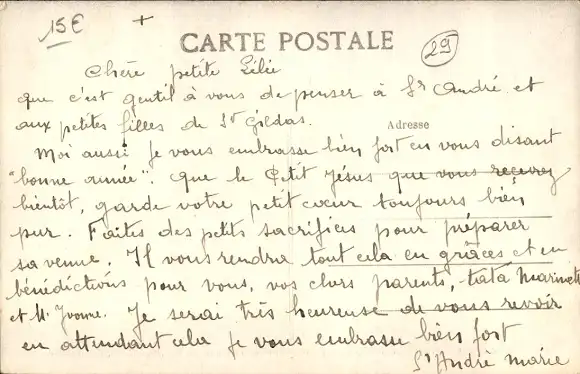 15€ +
CARTE POSTALE
29
Chère petite Lilie
que c'est gentil à vous de penser à Sr André et
aux petites filles de St Gildas.
Adresse
Moi aussi je vous embrasse bien fort en vous disant
"bonne année". que le Petit Jésus que vous recevez
bientôt, garde votre petit cœur toujours bien
pur. Faites des petits sacrifices pour préparer
sa venue. Il vous rendra tout cela en grâces et en
bénédictions pour vous, vos chers parents, tata Marinette
et M. Yvonne. Je serai très heureuse de vous revoir
en attendant cela je vous embrasse bien fort
Sr André marie